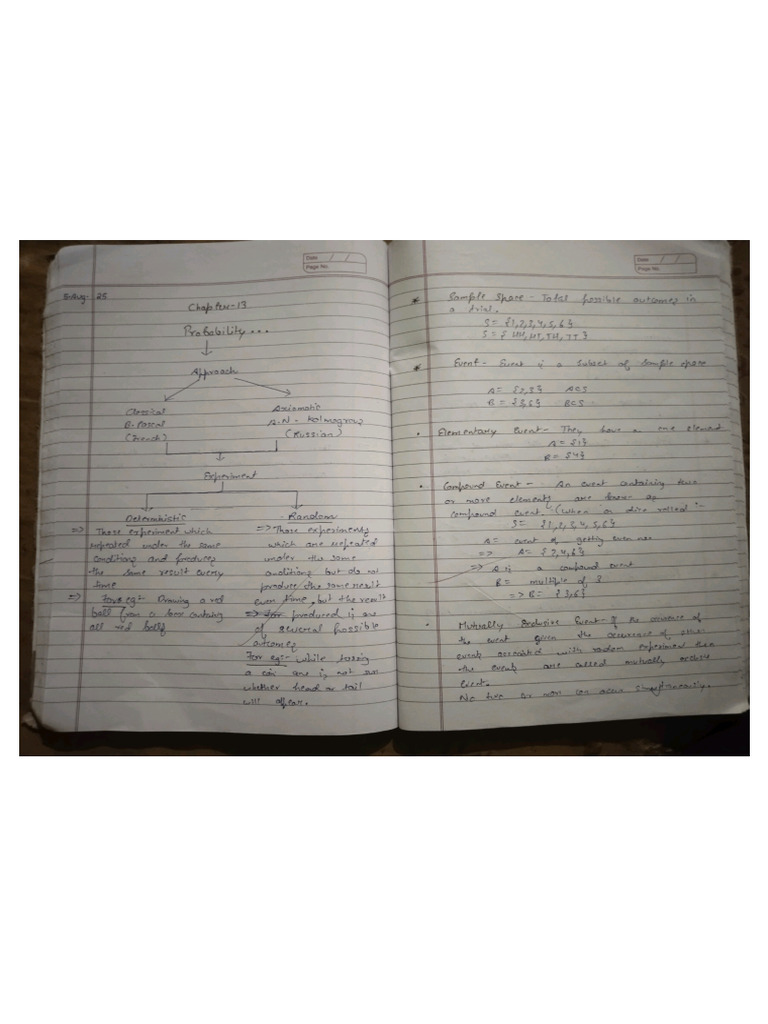 Date / /
Page No.
25
Chapter-13
Probability...
Approach
Classical
B. Pascal
(French)
Axiomatic
A.N - Kolmogrov
(Russian)
Experiment
Deterministic
=> Those experiment which
repeated under the same
conditions and produces
the same result every
time
=> For eg:- Drawing a red
ball from a box containg
all red balls
Random
=> Those experiments
which are repeated
under the same
conditions but do not
produce the same result
every time, but the result
=> For produced is one
of several possible
outcomes
For eg:- While tossing
a coin one is not sure
whether head or tail
will appear.
Date / /
Page No.
* Sample Space - Total possible outcomes in
a trial.
S = {1,2,3,4,5,6}
S = { HH, HT, TH, TT }
* Event - Event is a subset of sample space
A = {2,3} A⊂S
B = {3,5} B⊂S
• Elementary Event - They have a one element
A = {1}
B = {4}
• Compound Event - An event containing two
or more elements are known as
compound event. (When a dice rolled :-
S = {1,2,3,4,5,6}
A = event of getting even nos
=> A = {2,4,6}
=> A is a compound event
B = multiple of 3
=> B = {3,6}
• Mutually Exclusive Event - If the occurence of
the event given the occurence of other
events associated with random experiment then
the events are called mutually exclusive
Event.
No two or more can occur simultaneously.